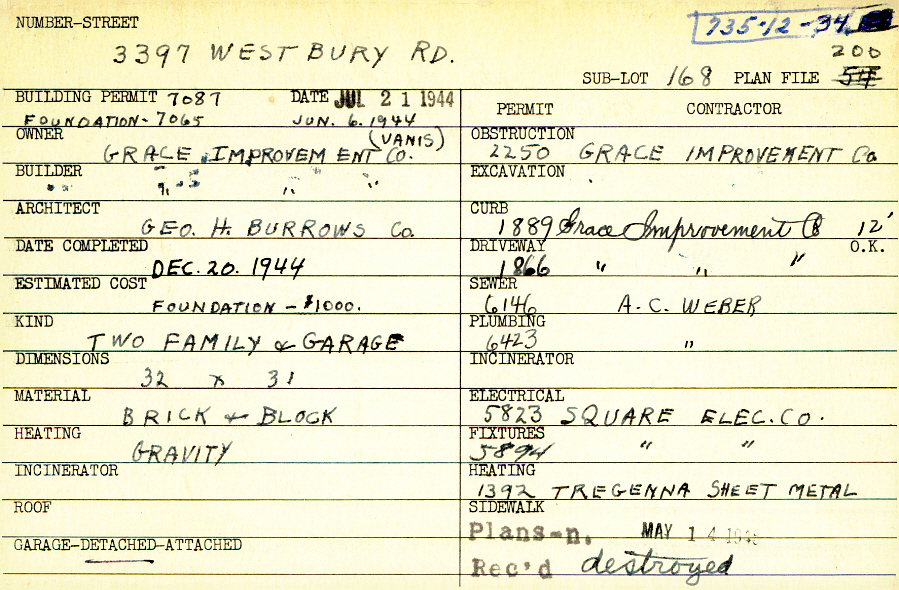 NUMBER-STREET 735-12-34
3397 WESTBURY RD. 200
SUB-LOT 168 PLAN FILE 54
BUILDING PERMIT 7087 DATE JUL 21 1944
FOUNDATION-7065 JUN. 6. 1944
OWNER (VANIS)
GRACE IMPROVEMENT Co.
BUILDER
" " " "
ARCHITECT
GEO. H. BURROWS Co.
DATE COMPLETED
DEC. 20. 1944
ESTIMATED COST
FOUNDATION - $1000.
KIND
TWO FAMILY & GARAGE
DIMENSIONS
32 x 31
MATERIAL
BRICK & BLOCK
HEATING
GRAVITY
INCINERATOR
ROOF
GARAGE-DETACHED-ATTACHED
PERMIT CONTRACTOR
OBSTRUCTION
2250 GRACE IMPROVEMENT Co
EXCAVATION
CURB
1889 Grace Improvement Co 12'
DRIVEWAY O.K.
1866 " " "
SEWER
6146 A.C. WEBER
PLUMBING
6423 "
INCINERATOR
ELECTRICAL
5823 SQUARE ELEC. CO.
FIXTURES
5894 " "
HEATING
1392 TREGENNA SHEET METAL
SIDEWALK
Plans-n. MAY 14
Rec'd destroyed